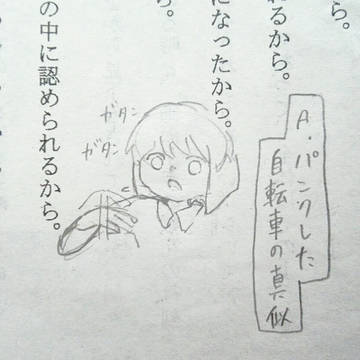 ら。
れるから。
になったから。
ら。
の中に認められるから。
A.パンクした
自転車の真似
ガタン
ガタン